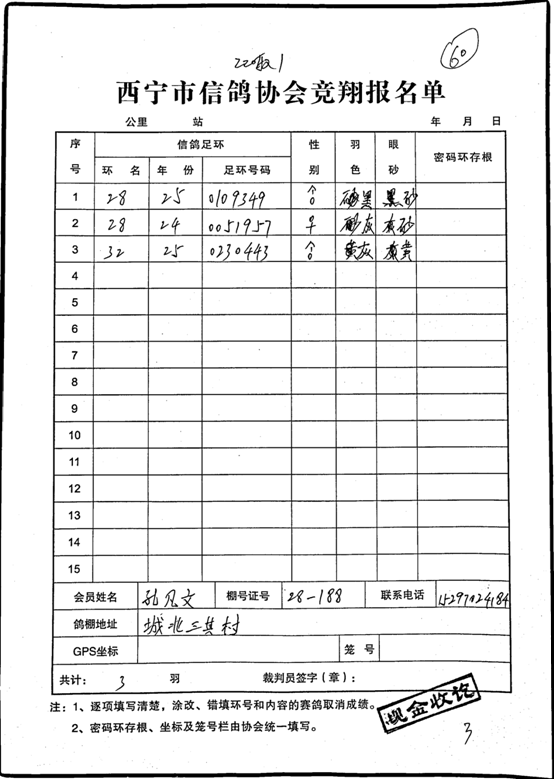 220取1
60
西宁市信鸽协会竞翔报名单
公里 站 年 月 日
序号 信鸽足环 性别 羽色 眼砂 密码环存根
环 名 年 份 足环号码
1 28 25 0109349 黑砂
2 28 24 0051957 ♀ 灰
3 32 25 0230443 黄灰
4
5
6
7
8
9
10
11
12
13
14
15
会员姓名 孔凡文 棚号证号 28-188 联系电话 15297024184
鸽棚地址 城北三其村
GPS坐标 笼 号
共计: 3 羽 裁判员签字(章):
注:1、逐项填写清楚,涂改、错填环号和内容的赛鸽取消成绩。
2、密码环存根、坐标及笼号栏由协会统一填写。
现金收讫
3